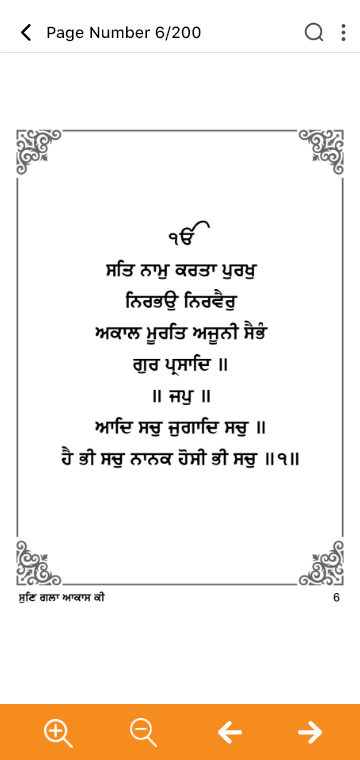 Page Number 6/200
ੴ
ਸਤਿ ਨਾਮੁ ਕਰਤਾ ਪੁਰਖੁ
ਨਿਰਭਉ ਨਿਰਵੈਰੁ
ਅਕਾਲ ਮੂਰਤਿ ਅਜੂਨੀ ਸੈਭੰ
ਗੁਰ ਪ੍ਰਸਾਦਿ ॥
॥ ਜਪੁ ॥
ਆਦਿ ਸਚੁ ਜੁਗਾਦਿ ਸਚੁ ॥
ਹੈ ਭੀ ਸਚੁ ਨਾਨਕ ਹੋਸੀ ਭੀ ਸਚੁ ॥੧॥
ਸੁਣਿ ਗਲਾ ਆਕਾਸ ਕੀ 6